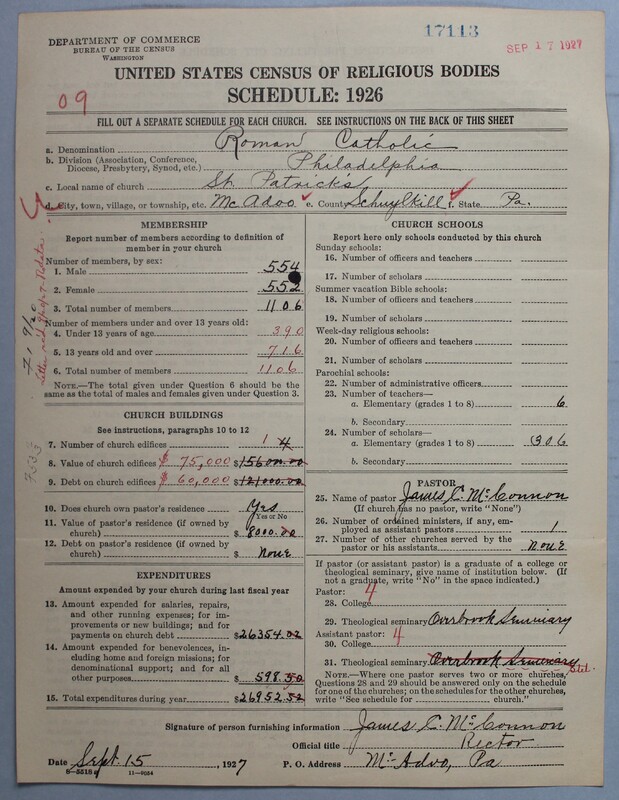 17113
SEP 17 1927
DEPARTMENT OF COMMERCE
BUREAU OF THE CENSUS
WASHINGTON
UNITED STATES CENSUS OF RELIGIOUS BODIES
SCHEDULE: 1926
09
FILL OUT A SEPARATE SCHEDULE FOR EACH CHURCH. SEE INSTRUCTIONS ON THE BACK OF THIS SHEET
a. Denomination Roman Catholic
b. Division (Association, Conference, Diocese, Presbytery, Synod, etc.) Philadelphia
c. Local name of church St. Patrick's
d. City, town, village, or township, etc. Mc Adoo e. County Schuylkill f. State Pa.
MEMBERSHIP
Report number of members according to definition of member in your church
Number of members, by sex:
1. Male 554
2. Female 552
3. Total number of members 1106
Number of members under and over 13 years old:
4. Under 13 years of age 390
5. 13 years old and over 716
6. Total number of members 1106
NOTE.—The total given under Question 6 should be the same as the total of males and females given under Question 3.
CHURCH BUILDINGS
See instructions, paragraphs 10 to 12
7. Number of church edifices 1 4
8. Value of church edifices $ 75,000 $156000.00
9. Debt on church edifices $ 60,000 $121000.00
10. Does church own pastor's residence Yes
Yes or No
11. Value of pastor's residence (if owned by church) $8000.00
12. Debt on pastor's residence (if owned by church) $ None
EXPENDITURES
Amount expended by your church during last fiscal year
13. Amount expended for salaries, repairs, and other running expenses; for improvements or new buildings; and for payments on church debt $26354.02
14. Amount expended for benevolences, including home and foreign missions; for denominational support; and for all other purposes $ 598.50
15. Total expenditures during year $26952.52
CHURCH SCHOOLS
Report here only schools conducted by this church
Sunday schools:
16. Number of officers and teachers
17. Number of scholars
Summer vacation Bible schools:
18. Number of officers and teachers
19. Number of scholars
Week-day religious schools:
20. Number of officers and teachers
21. Number of scholars
Parochial schools:
22. Number of administrative officers
23. Number of teachers—
a. Elementary (grades 1 to 8) 6
b. Secondary
24. Number of scholars—
a. Elementary (grades 1 to 8) 306
b. Secondary
PASTOR
25. Name of pastor James C. McConnon
(If church has no pastor, write "None")
26. Number of ordained ministers, if any, employed as assistant pastors 1
27. Number of other churches served by the pastor or his assistants None
If pastor (or assistant pastor) is a graduate of a college or theological seminary, give name of institution below. (If not a graduate, write "No" in the space indicated.)
Pastor:
28. College 4
29. Theological seminary Overbrook Seminary
Assistant pastor: 4
30. College
31. Theological seminary Overbrook Seminary
NOTE.—Where one pastor serves two or more churches, Questions 28 and 29 should be answered only on the schedule for one of the churches; on the schedules for the other churches, write "See schedule for church."
Signature of person furnishing information James C. McConnon
Official title Rector
Date Sept. 15, 1927 P. O. Address McAdoo, Pa
8-5518a 11-9054